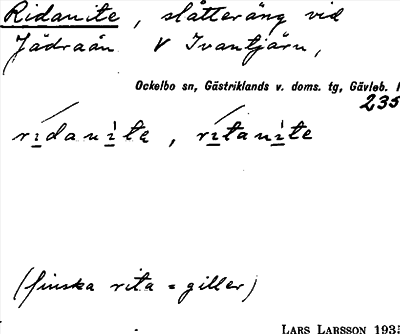 Ridanite, slåtteräng vid
Jädraån V Ivantjärn,
Ockelbo sn, Gästriklands v. doms. tg, Gävleb.
235
ridanite, ritanite
(finska rita = giller)
LARS LARSSON 193